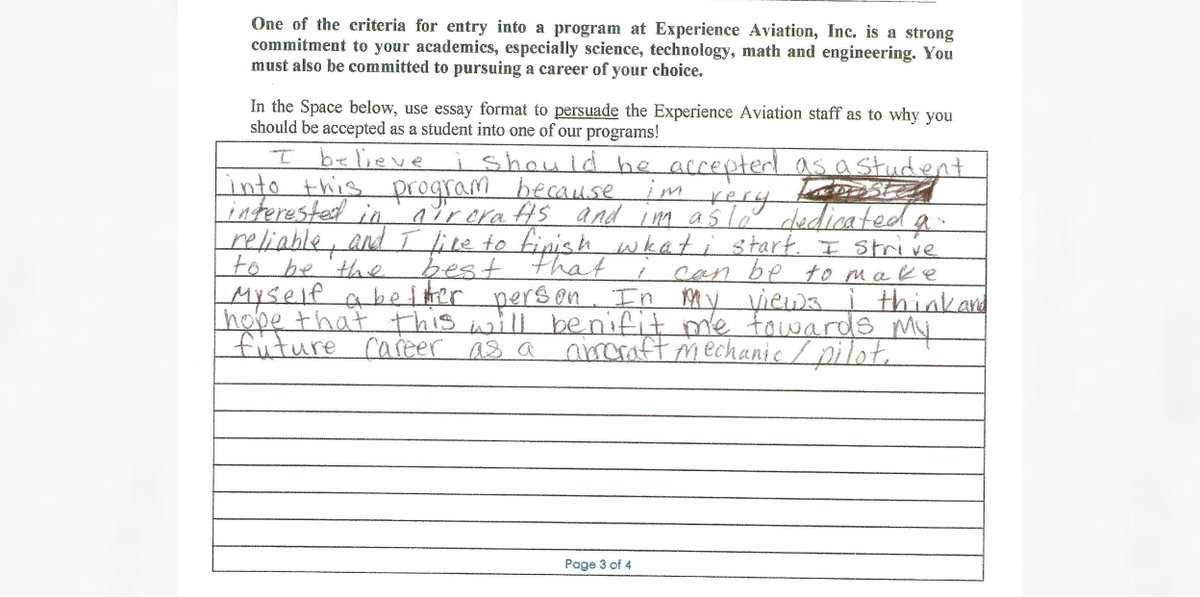 One of the criteria for entry into a program at Experience Aviation, Inc. is a strong
commitment to your academics, especially science, technology, math and engineering. You
must also be committed to pursuing a career of your choice.
In the Space below, use essay format to persuade the Experience Aviation staff as to why you
should be accepted as a student into one of our programs!
I believe i should be accepted as a student
into this program because im very
interested in aircrafts and im aslo dedicated
reliable, and I like to finish what i start. I strive
to be the best that i can be to make
Myself a better person. In my views i think and
hope that this will benifit me towards my
future career as a aircraft mechanic / pilot.
Page 3 of 4